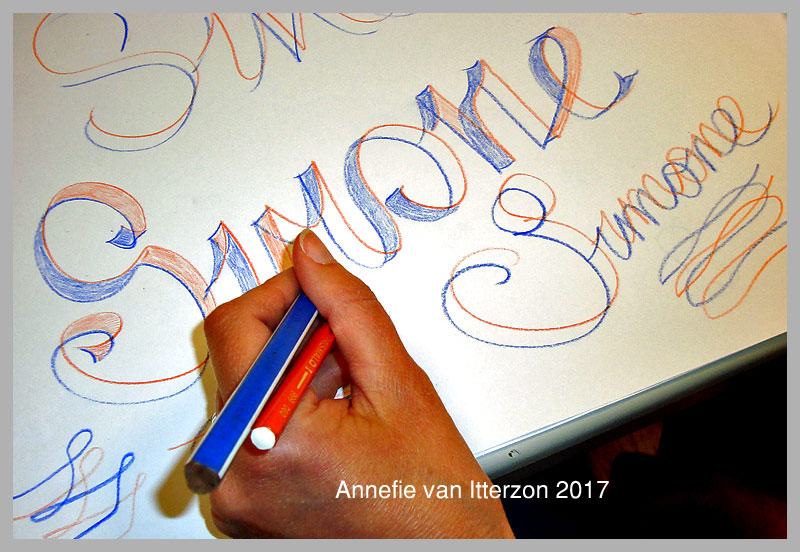 Simone
Simone
Annefie van Itterzon 2017